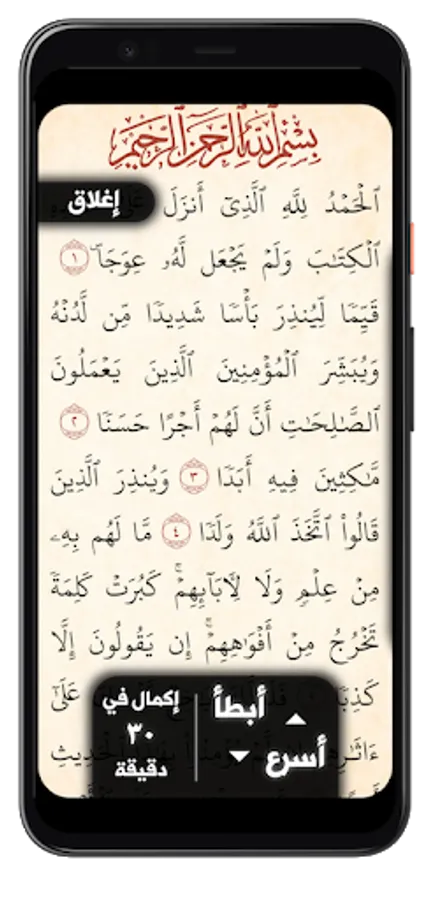 بِسْمِ ٱللَّهِ ٱلرَّحْمَٰنِ ٱلرَّحِيمِ
إغلاق
ٱلْحَمْدُ لِلَّهِ ٱلَّذِىٓ أَنزَلَ عَلَىٰ
ٱلْكِتَٰبَ وَلَمْ يَجْعَل لَّهُۥ عِوَجَاۜ ١
قَيِّمًا لِّيُنذِرَ بَأْسًا شَدِيدًا مِّن لَّدُنْهُ
وَيُبَشِّرَ ٱلْمُؤْمِنِينَ ٱلَّذِينَ يَعْمَلُونَ
ٱلصَّٰلِحَٰتِ أَنَّ لَهُمْ أَجْرًا حَسَنًا ٢
مَّٰكِثِينَ فِيهِ أَبَدًا ٣ وَيُنذِرَ ٱلَّذِينَ
قَالُوا۟ ٱتَّخَذَ ٱللَّهُ وَلَدًا ٤ مَّا لَهُم بِهِۦ
مِنْ عِلْمٍ وَلَا لِءَابَآئِهِمْۚ كَبُرَتْ كَلِمَةً
تَخْرُجُ مِنْ أَفْوَٰهِهِمْۚ إِن يَقُولُونَ إِلَّا
كَذِبًا عَلَىٰٓ
ءَاثَٰرِهِمْ ٱلْحَدِيثِ
أبطأ
أسرع
إكمال في
٣٠
دقيقة